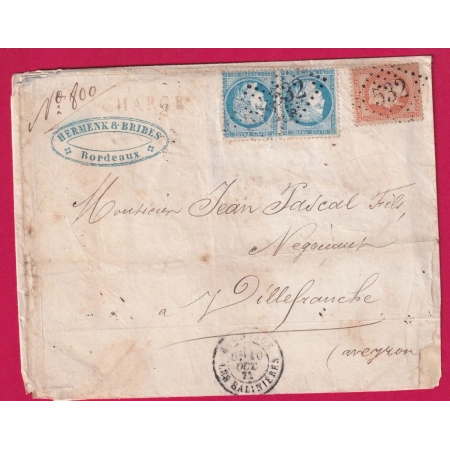 No 800
CHARGÉ
HERMENK & BRIBES
Bordeaux
532
532
Monsieur Jean Pascal Fils,
Négociant
à Villefranche
(aveyron)
10
OCT
LES SALINIERES